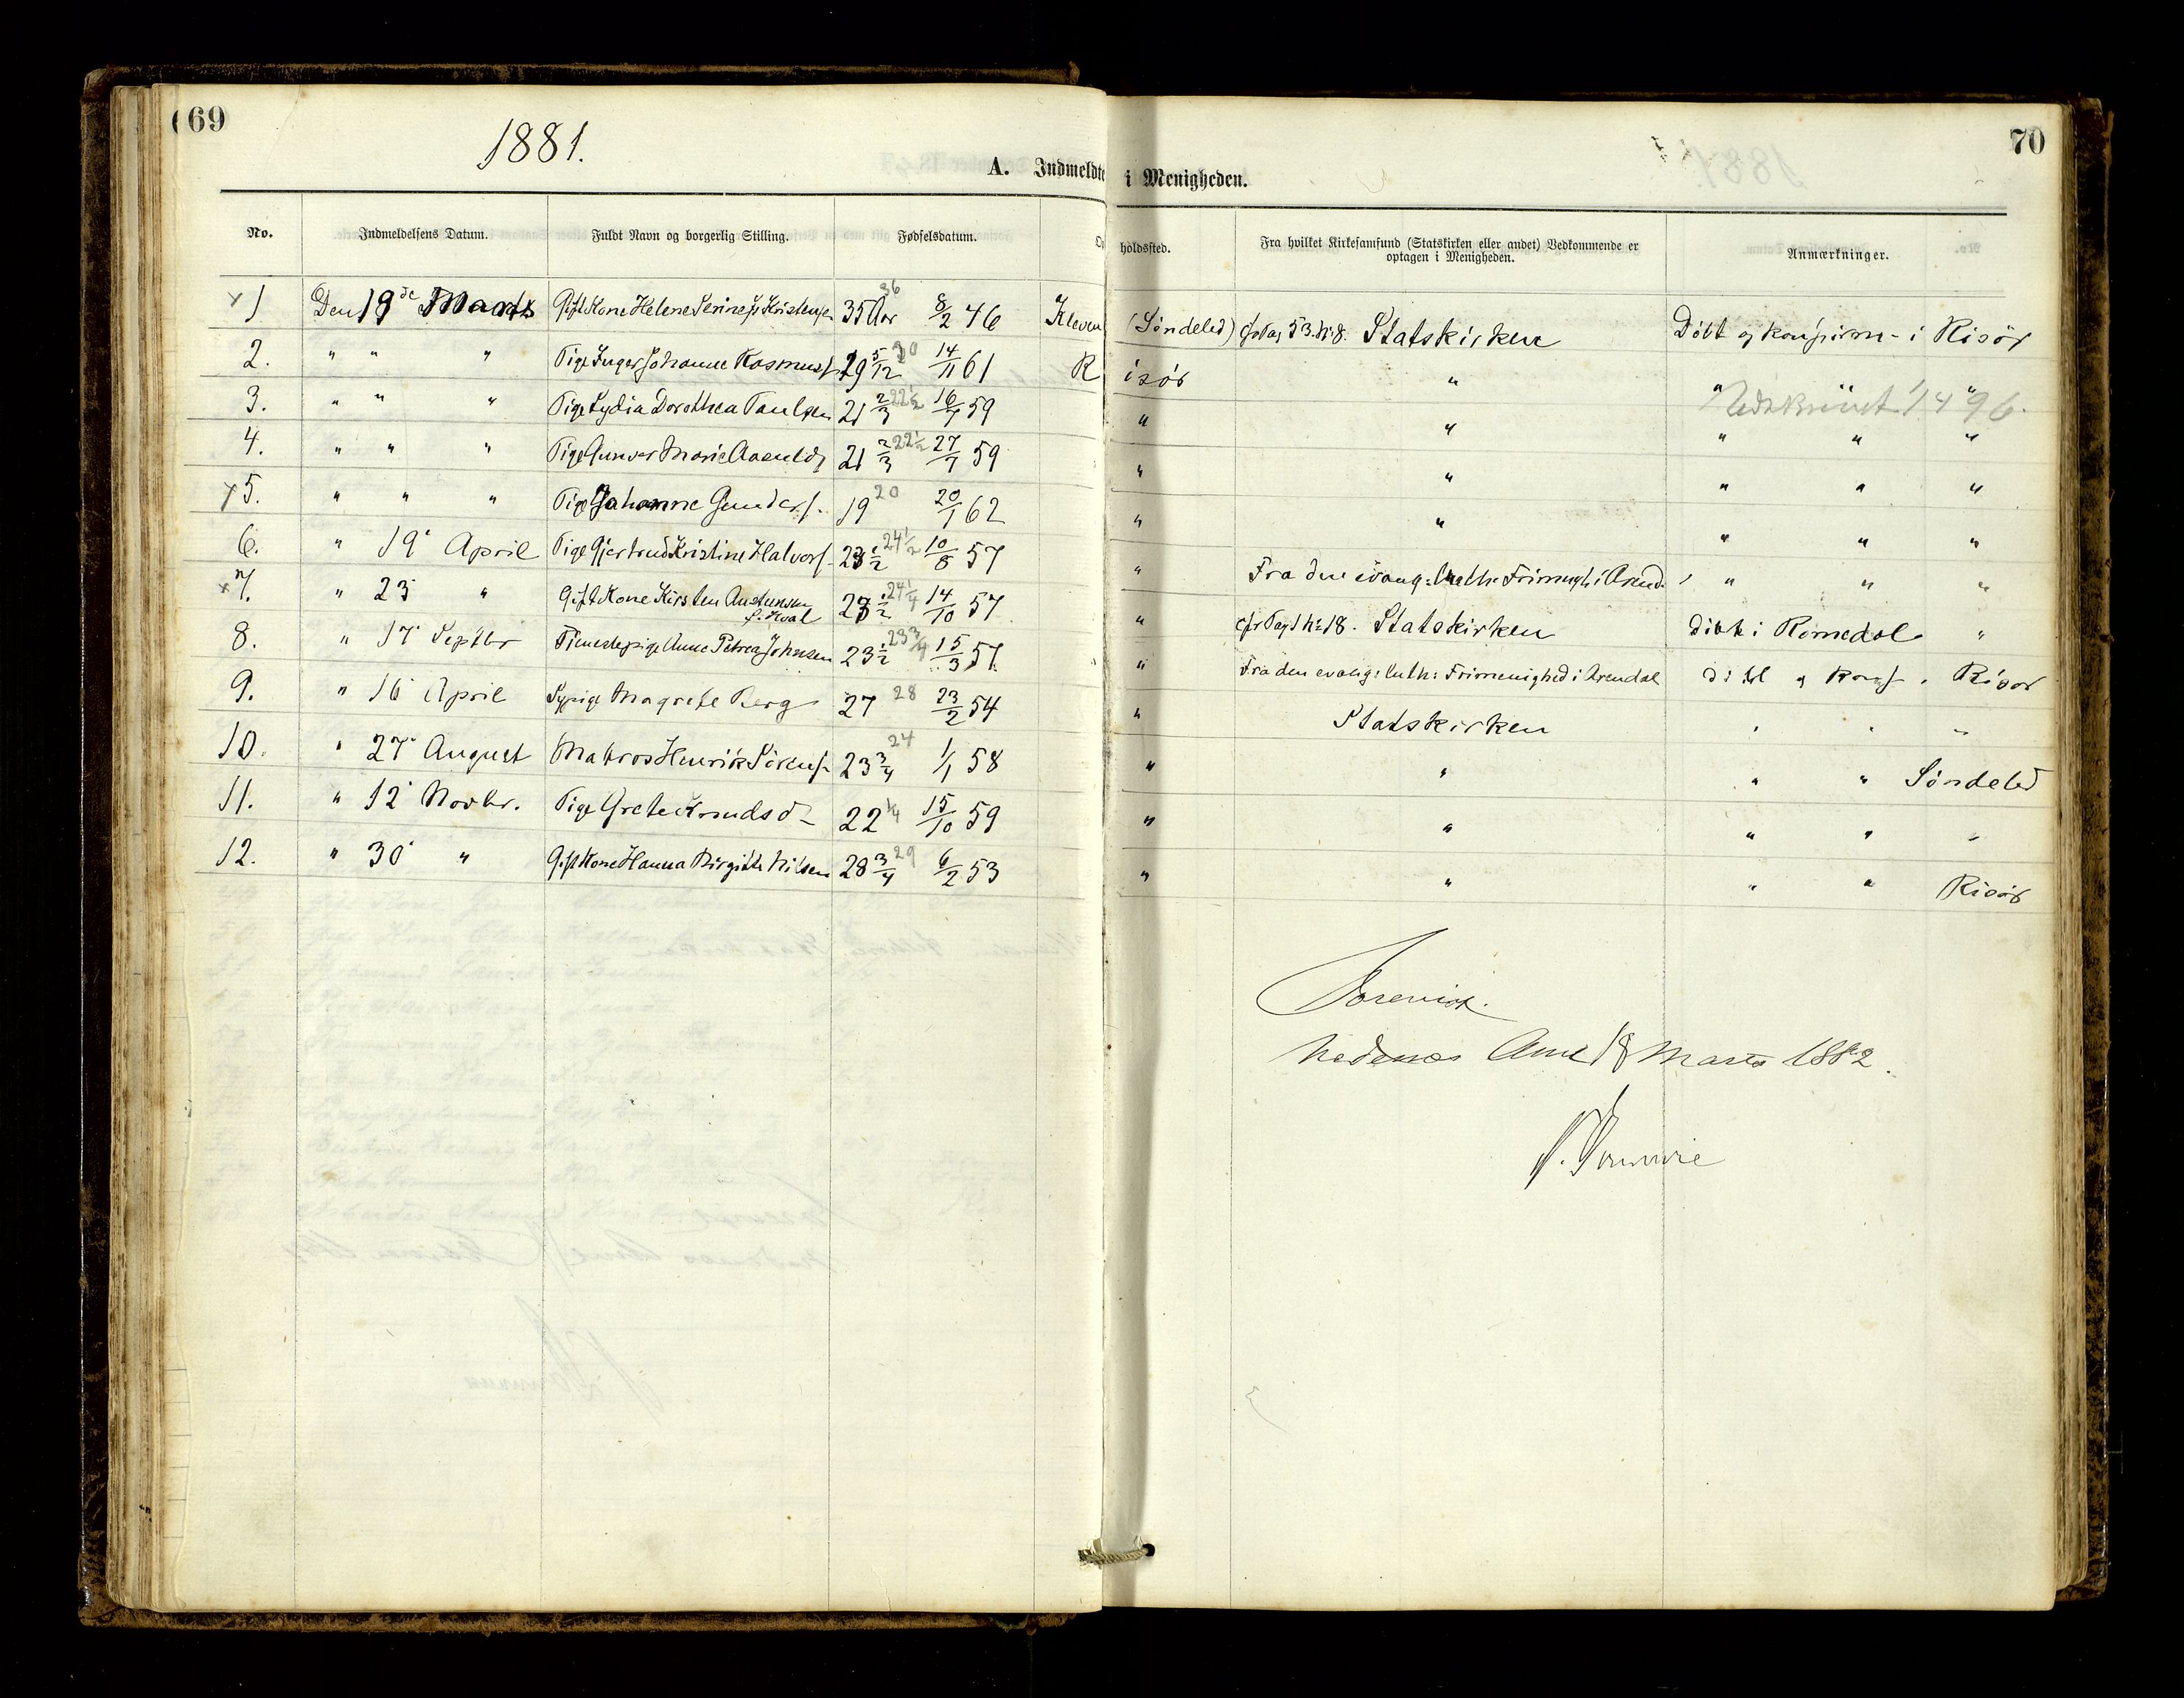 69
1881.
A. Indmeldte i Menigheden.
70
No. Indmeldelsens Datum. Fuldt Navn og borgerlig Stilling. Fødselsdatum. Op holdssted. Fra hvilket Kirkesamfund (Statskirken eller andet) Vedkommende er optagen i Menigheden. Anmærkninger.
x 1 Den 19de Marts Gift Kone Helene Serine Kristensen 35 Aar 36 8/2 46 Kleven (Søndeled) cfr Pag 53. No 8. Statskirken Døbt og konfirm- i Risør
2. " " " Pige Inger Johanne Rasmuss 19 5/12 20 14/11 61 Risør " " " "
3. " " " Pige Lydia Dorothea Paulsen 21 2/3 22 1/2 16/7 59 " " Udskrevet 1/4 96.
4. " " " Pige Gunvor Marie 21 2/3 22 1/2 27/7 59 " " " " "
x 5. " " " Pige Johanne Gunders. 19 20 20/1 62 " " " " "
6. " 19' April Pige Gjertrud Kristine Halvors. 23 1/2 24 1/2 10/8 57 " Fra den evang: luth: Frimengh: i Arend. " " "
x 7. " 23' " Gift Kone Kirsten Austensen f. Kval 23 1/2 24 1/4 14/10 57 " cfr Pag 1 No 18. Statskirken døbt i Romedal "
8. " 17' Septbr Tjenestepige Anne Petrea Johnsen 23 1/2 23 3/4 15/3 57. " Fra den evang: luth: Frimenighed i Arendal døbt og konf. i Risør
9. " 16' April Sypige Magrete Berg 27 28 23/2 54 " Statskirken " " "
10. " 27' August Matros Henrik Sörens. 23 3/4 24 1/1 58 " " " " Søndeled
11. " 12' Novbr. Pige Grete Knudsd. 22 1/4 15/10 59 " " " " "
12. " 30' " Gift Kone Hanna Birgitte Nilsen 28 3/4 29 6/2 53 " " " " Risør
Forevist.
Nedenes Amt 18 Marts 1882.